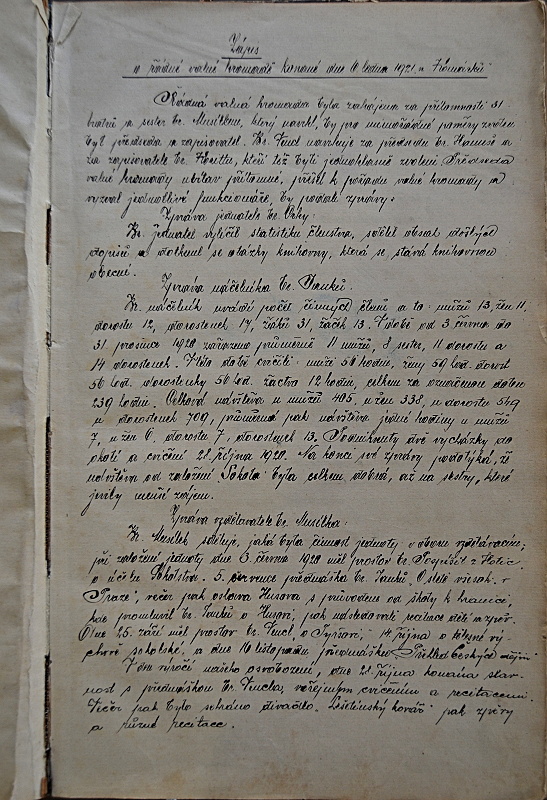 Zápis
o řádné valné hromadě konané dne 6 ledna 1921 v
Řádná valná hromada byla zahájena za přítomnosti 31
bratrů a sester br. Musilkem, který navrhl, by pro mimořádné poměry zvolen
byl předseda a zapisovatel. Br. Fencl navrhuje za předsedu br. Hanuše a
za zapisovatele br. kteří též byli jednohlasně zvoleni. Předseda
valné hromady uvítav přítomné, přešel k pořadu valné hromady a
vyzval jednotlivé funkcionáře, by podali zprávy:
Zpráva jednatele br.
Br. jednatel vylíčil statistiku členstva, sdělil obsah došlých
dopisů a dotknul se otázky knihovny, která se stává knihovnou
obecní.
Zpráva náčelníka br. Janků.
Br. náčelník uvádí počet činných členů a to: mužů 13, žen 11,
dorostu 12, dorostenek 17, žáků 31, žaček 13. V době od 3 června do
31 prosince 1920 zařazeno průměrně 11 mužů, 8 sester, 11 dorostu a
14 dorostenek. V této době cvičili: muži 56 hodin, ženy 59 hod. dorost
56 hod. dorostenky 56 hod. žactvo 12 hodin, celkem za označenou dobu
239 hodin. Celková návštěva u mužů 405, u žen 338, u dorostu 549
u dorostenek 709, průměrná pak návštěva jedné hodiny u mužů
7, u žen 6, dorostu 7, dorostenek 13. Podniknuty dvě vycházky do
okolí a cvičení 28. října 1920. Na konci své zprávy podotýká, že
návštěva od založení Sokola byla celkem dobrá, až na sestry, které
jevily menší zájem.
Zpráva vzdělavatele br. Musilka:
Br. Musilek sděluje, jaká byla činnost jednoty v oboru vzdělávacím;
při založení jednoty dne 3. června 1920 měl proslov br. Pospíšil z Hořic
o účelu Sokolstva. 5. července přednáška br. Janků. O sletě všesok. v
Praze, večer pak oslava Husova s průvodem od školy k hranici,
kde promluvil br. Janků o Husovi, pak následovali recitace dětí a zpěv.
Dne 25. září měl proslov br. Fencl, o Tyršovi, 14. října o tělesné vý-
chově sokolské, a dne 16 listopadu přednáška: Přehled českých dějin
V den výročí našeho osvobození, dne 28. října konána slav-
nost s přednáškou br. Fencla, veřejným cvičením a recitacemi.
Večer pak bylo sehráno divadlo. kovář pak zpěvy
a různé recitace.